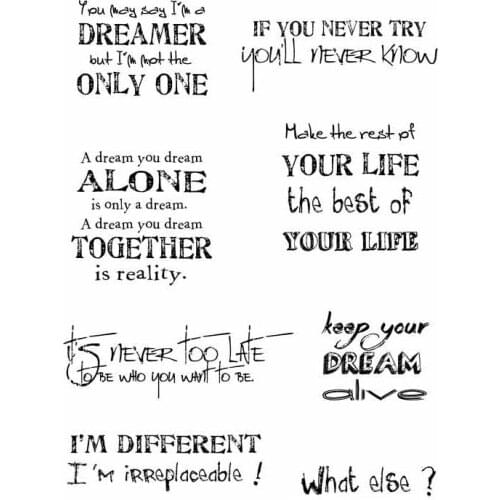 You may say I'm a
DREAMER
but I'm not the
ONLY ONE
IF YOU NEVER TRY
you'll never know
A dream you dream
ALONE
is only a dream.
A dream you dream
TOGETHER
is reality.
Make the rest of
YOUR LIFE
the best of
YOUR LIFE
IT'S NEVER TOO LATE
TO BE who you want TO BE.
keep your
DREAM
alive
I'M DIFFERENT
I'M iRReplaceable !
What else ?